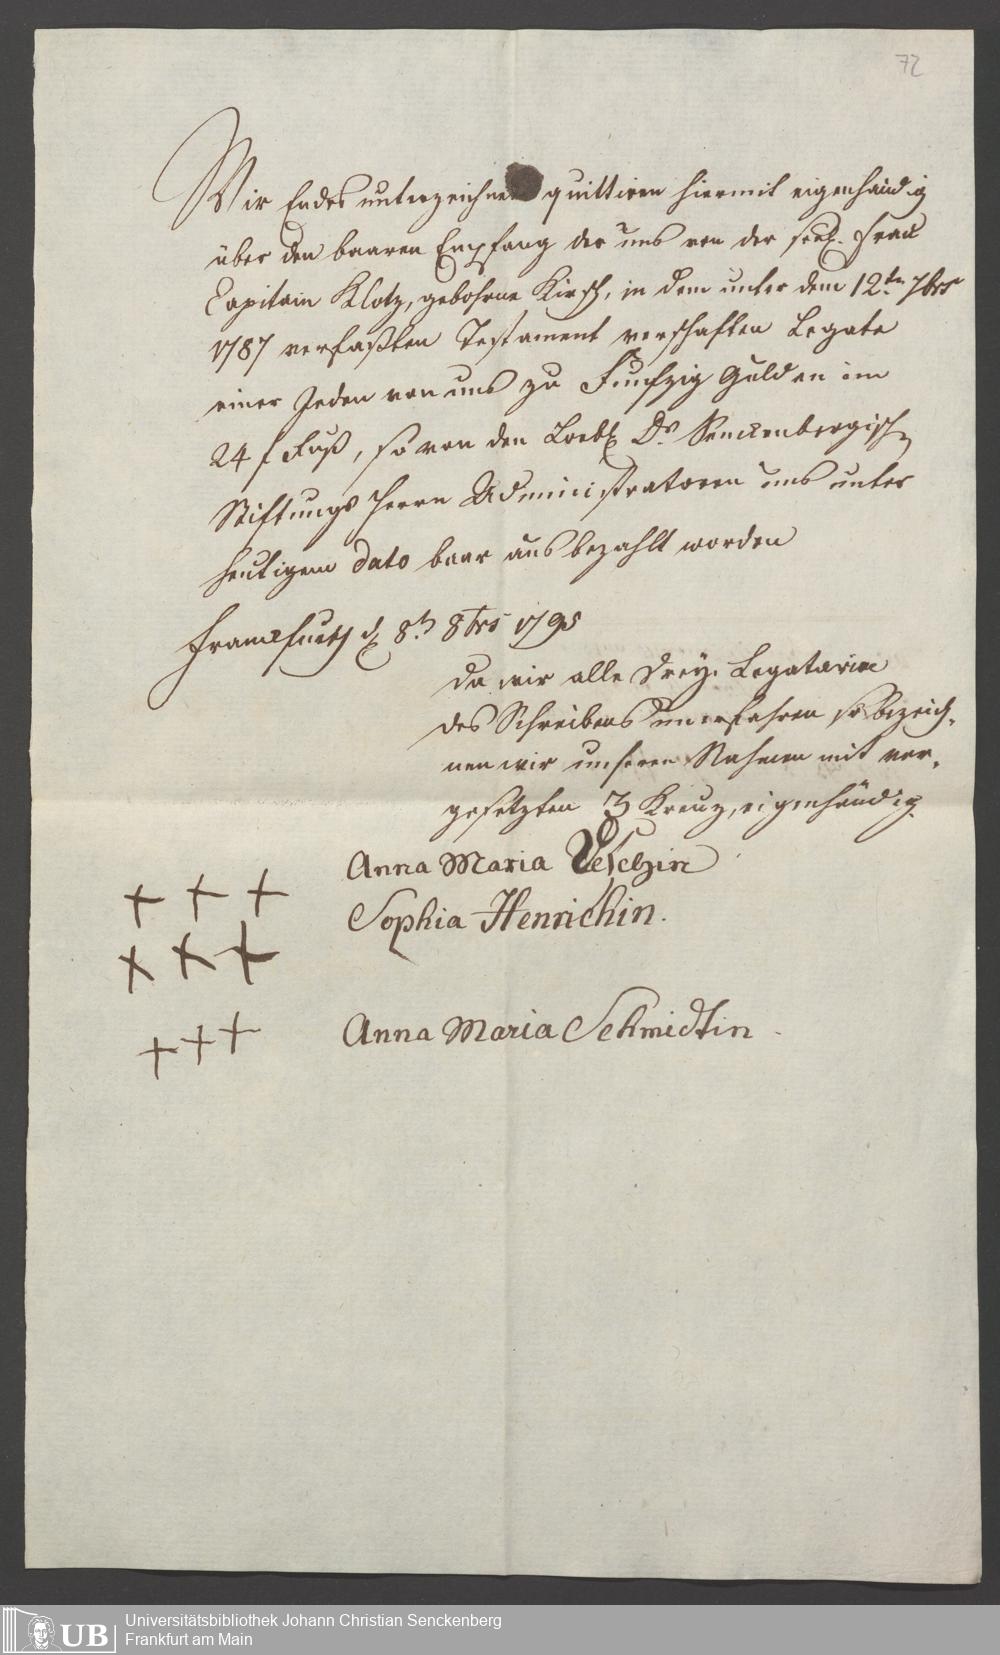 72
Wir Endes unterzeichnete quittiren hiermit eigenhändig
über den baaren Empfang der uns von der seel. Frau
Capitain Klotz, gebohrne Kirsch, in dem unter dem 12ten 7brs
1787 verfaßten Testament verschafften Legate
einer Jeden von uns zu Funfzig Gulden im
24 f Fuß, so von den Löbl Drs Senckenbergisch
Stiftungs Herrn Administratoren uns unter
heutigem dato baar ausbezahlt worden
Franckfurth d 8th 8brs 1795
Da wir alle Drey Legatarien
des Schreibens unerfahren so bezeich-
nen wir unseren Nahmen mit vor-
gesetzten 3 Kreuz, eigenhändig.
+ + + Anna Maria
+ + + Sophia Henrichin.
+ + + Anna Maria Schmidtin
UB Universitätsbibliothek Johann Christian Senckenberg
Frankfurt am Main